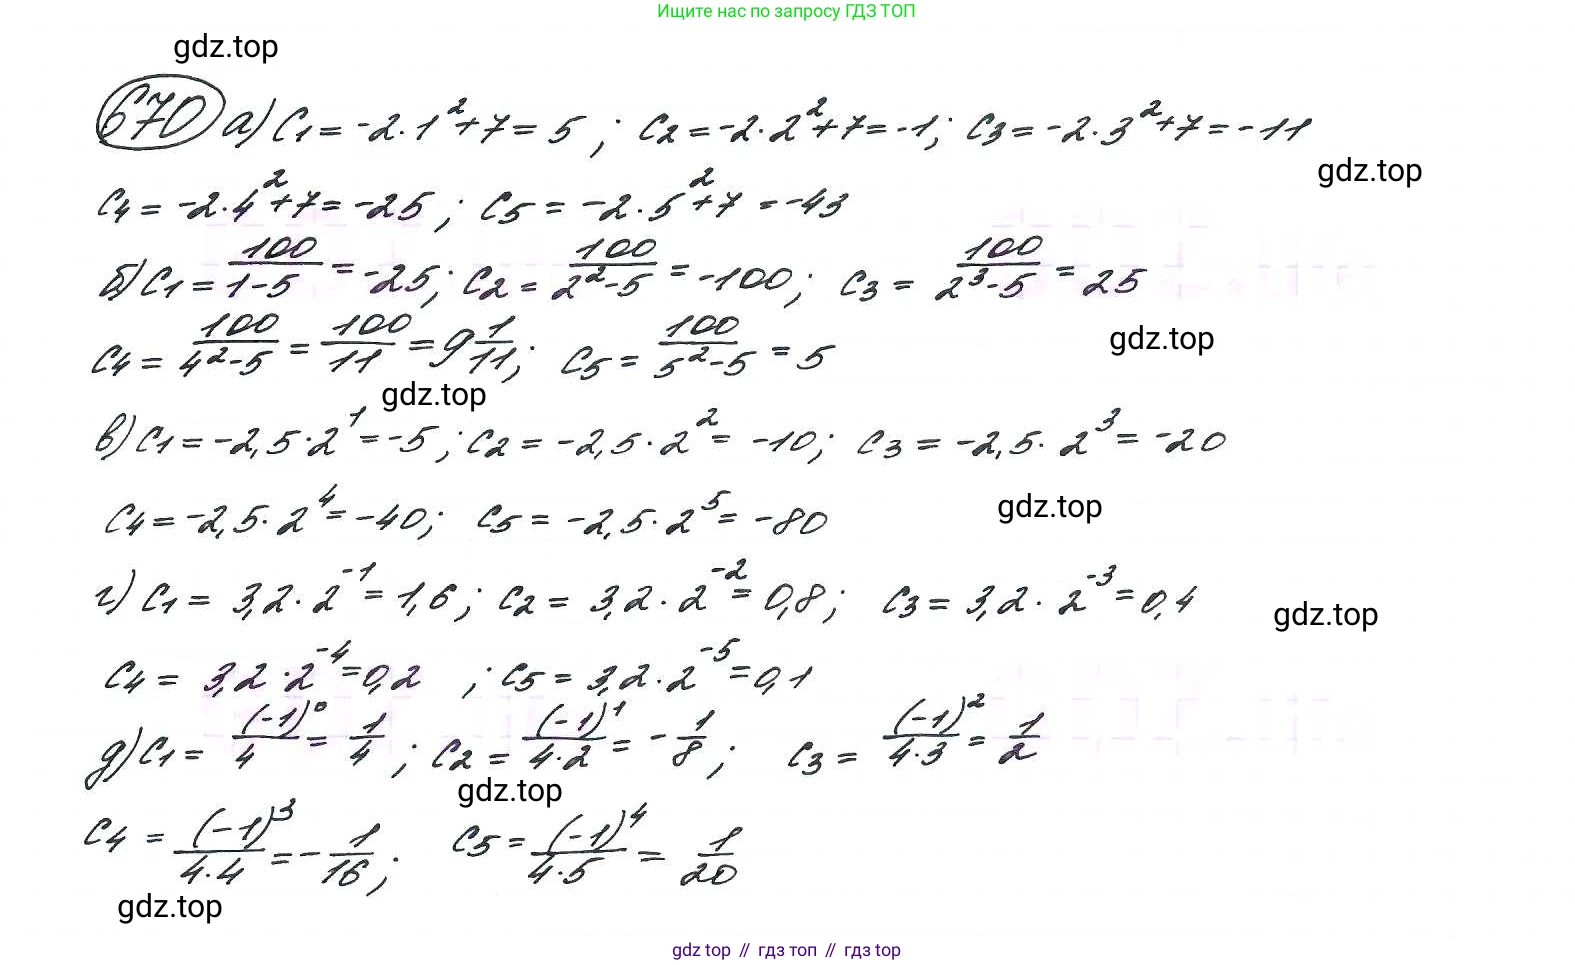 Ищите нас по запросу ГДЗ ТОП
gdz.top
670 а) C₁ = -2·1² + 7 = 5 ; C₂ = -2·2² + 7 = -1; C₃ = -2·3² + 7 = -11
gdz.top
C₄ = -2·4² + 7 = -25 ; C₅ = -2·5² + 7 = -43
б) C₁ = 100/(1-5) = -25; C₂ = 100/(2²-5) = -100; C₃ = 100/(2³-5) = 25
gdz.top
C₄ = 100/(4²-5) = 100/11 = 9 1/11; C₅ = 100/(5²-5) = 5
gdz.top
в) C₁ = -2,5·2¹ = -5 ; C₂ = -2,5·2² = -10; C₃ = -2,5·2³ = -20
gdz.top
C₄ = -2,5·2⁴ = -40; C₅ = -2,5·2⁵ = -80
г) C₁ = 3,2·2⁻¹ = 1,6; C₂ = 3,2·2⁻² = 0,8; C₃ = 3,2·2⁻³ = 0,4
gdz.top
C₄ = 3,2·2⁻⁴ = 0,2 ; C₅ = 3,2·2⁻⁵ = 0,1
д) C₁ = (-1)⁰/4 = 1/4 ; C₂ = (-1)¹/(4·2) = -1/8 ; C₃ = (-1)²/(4·3) = 1/2
gdz.top
C₄ = (-1)³/(4·4) = -1/16 ; C₅ = (-1)⁴/(4·5) = 1/20
gdz.top
gdz top // гдз топ // гдз top